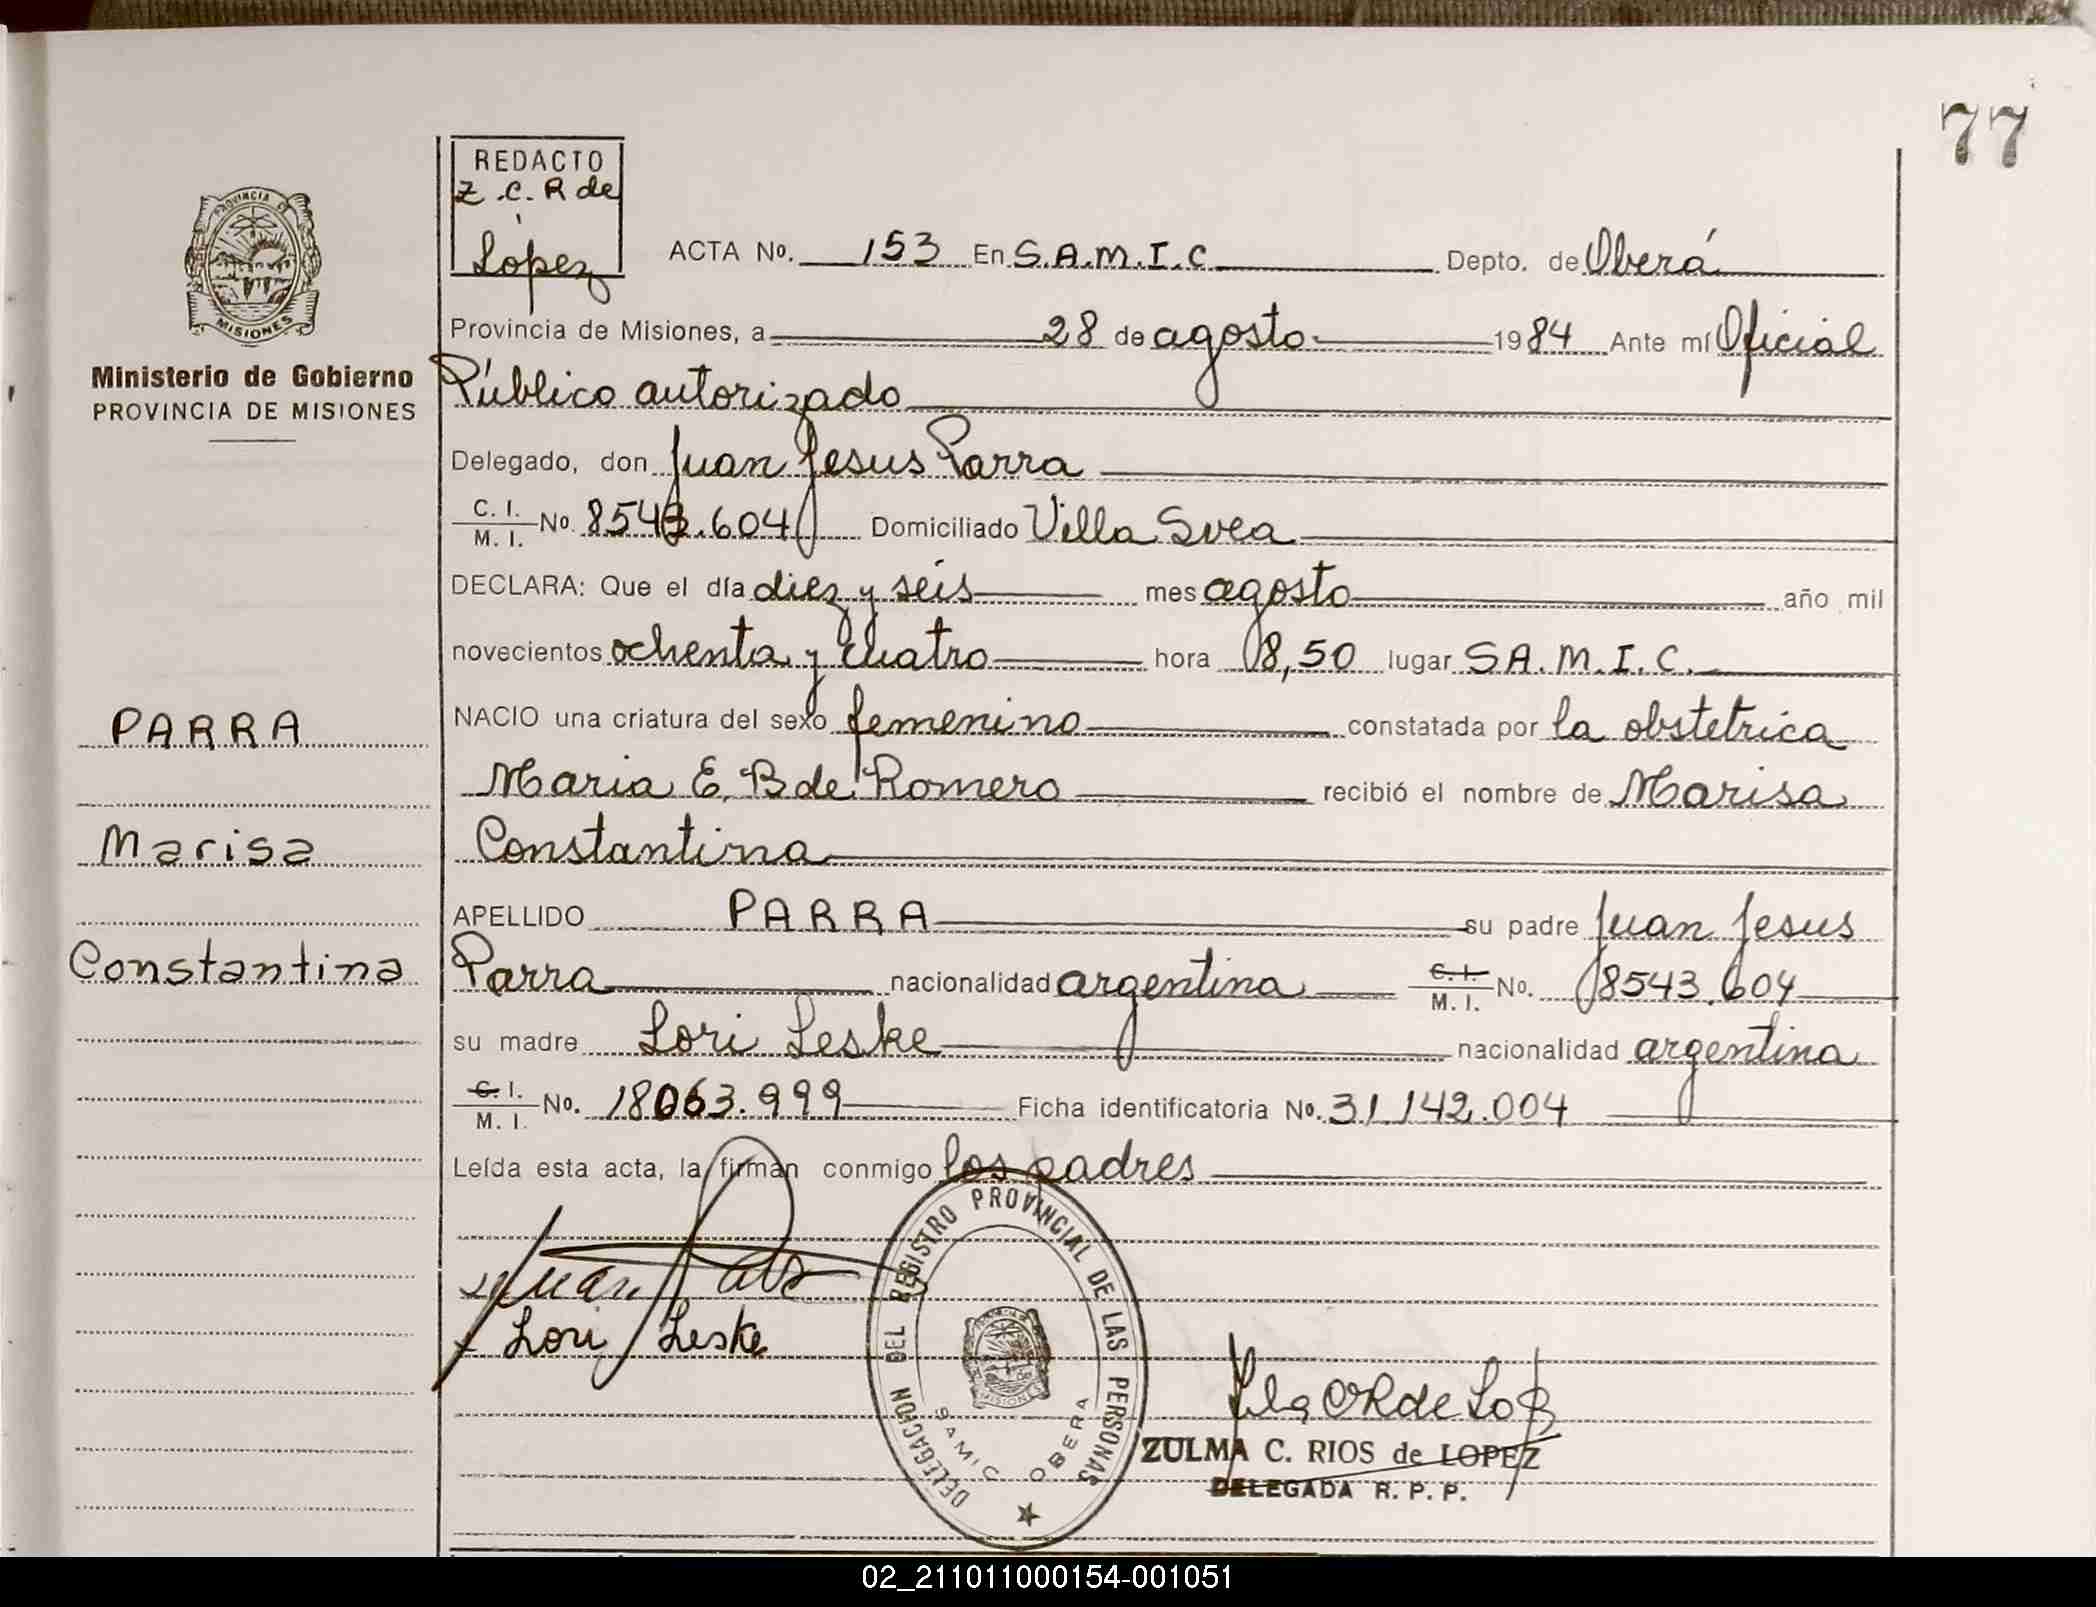 77
REDACTO
Z. C. R de
Lopez
ACTA No. 153 En S.A.M.I.C Depto. de Oberá
PROVINCIA DE
MISIONES
Provincia de Misiones, a 28 de agosto 1984 Ante mí Oficial
Ministerio de Gobierno
PROVINCIA DE MISIONES
Público autorizado
Delegado, don Juan Jesus Parra
C. I.
M. I. No. 8543.604 Domiciliado Villa Svea
DECLARA: Que el día diez y seis mes agosto año mil
novecientos ochenta y cuatro hora 8,50 lugar S.A.M.I.C.
NACIO una criatura del sexo femenino constatada por la obstetrica
Maria E. B de Romero recibió el nombre de Marisa
Constantina
APELLIDO PARRA su padre Juan Jesus
Parra nacionalidad argentina C. I.
M. I. No. 8543.604
su madre Lori Leske nacionalidad argentina
C. I.
M. I. No. 18063.999 Ficha identificatoria No. 31 142.004
Leída esta acta, la firman conmigo los padres
PARRA
Marisa
Constantina
Juan
Lori Leske
DELEGACION DEL REGISTRO PROVINCIAL DE LAS PERSONAS
MISIONES
SAMIC OBERA
ZULMA C. RIOS de LOPEZ
DELEGADA R. P. P.
02_211011000154-001051